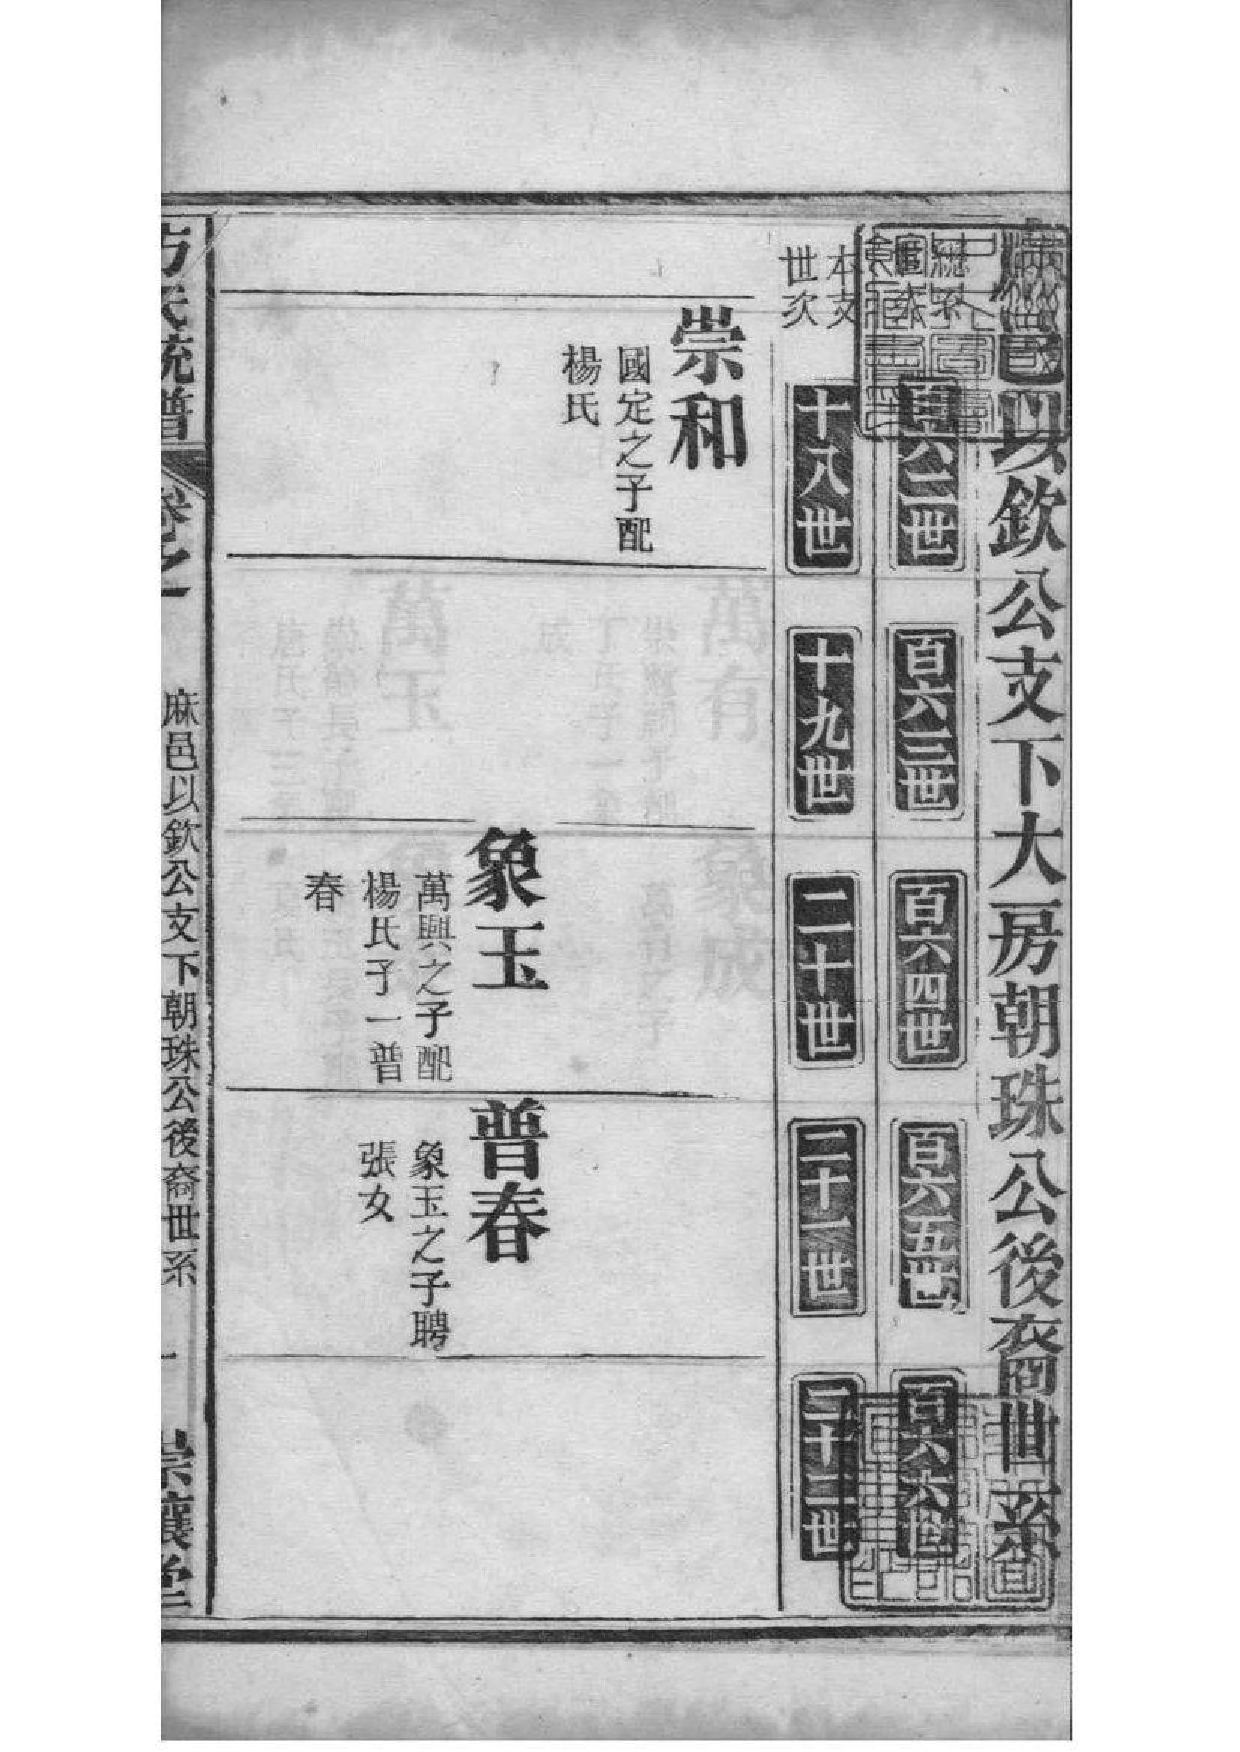 麻邑以欽公支下大房朝珠公後裔世系
百六二世
百六三世
百六四世
百六五世
百六六世
本支
世次
十八世
十九世
二十世
二十一世
二十二世
崇和
國定之子配
楊氏
象玉
萬興之子配
楊氏子一普
春
普春
象玉之子聘
張女
方氏統譜
卷之一
麻邑以欽公支下朝珠公後裔世系
一